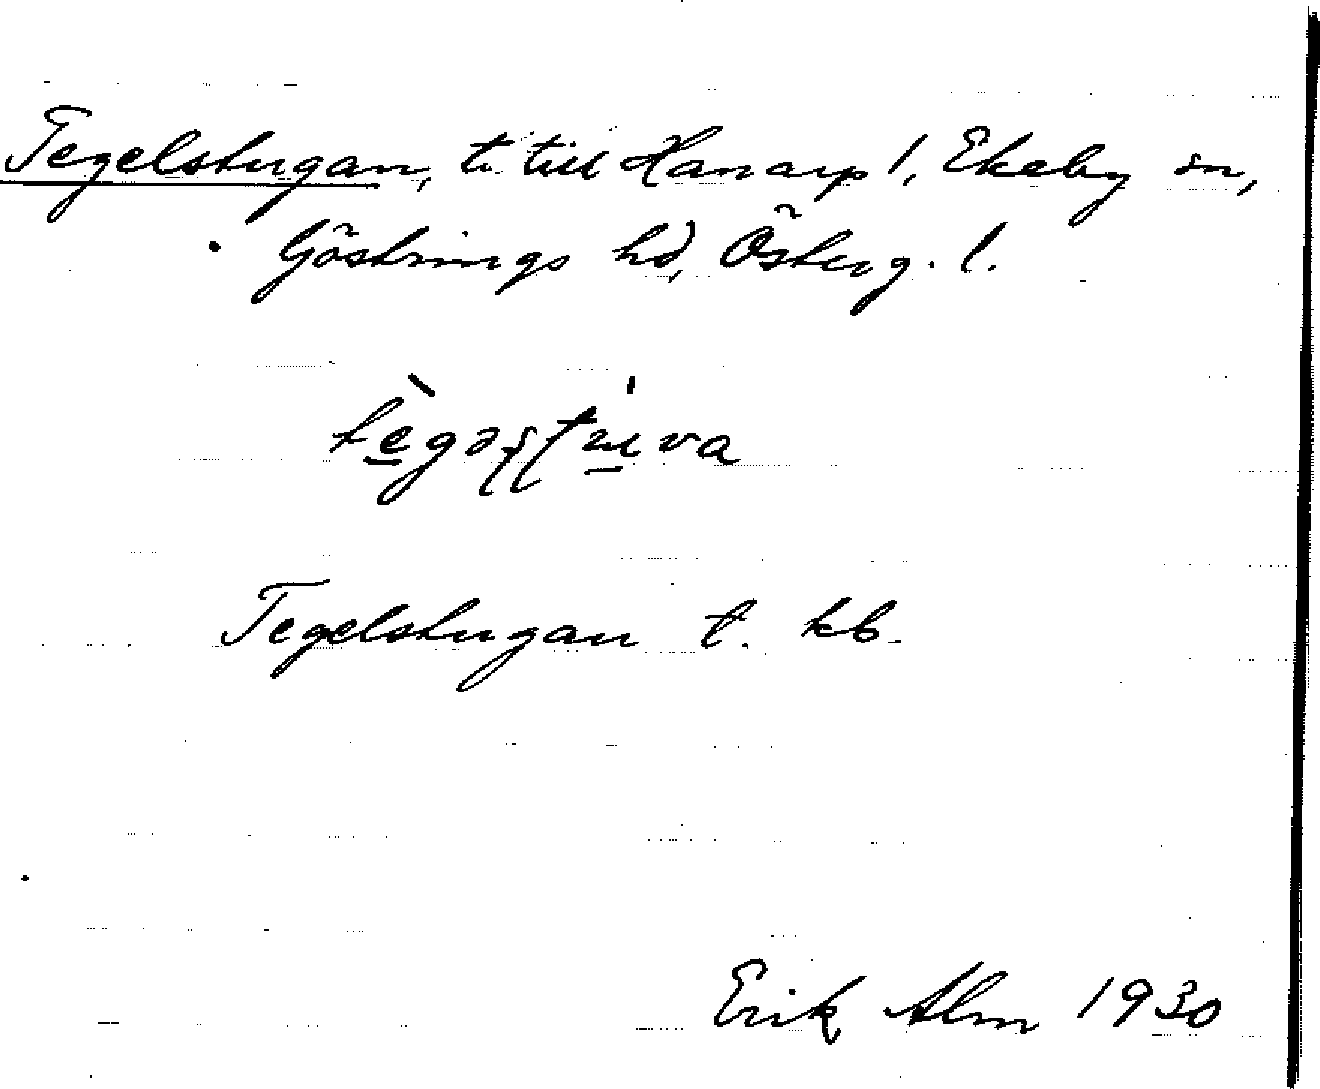 Tegelstugan, t. till Hanarp 1, Ekeby sn,
Göstrings hd, Österg. l.
Tegelstugan t. kb.
Erik Alm 1930